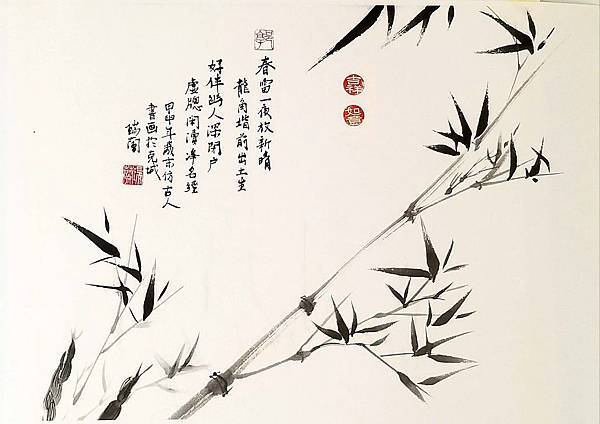 春雷一夜放新晴
龍角堦前出土生
好伴幽人深閉户
虛牕閑讀淨名經
甲申年歲末仿古人
書画於克城
吉祥
如意